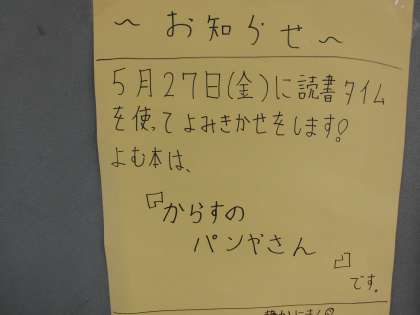 ～お知らせ～
5月27日(金)に読書タイム
を使ってよみきかせをします!
よむ本は、
『からすの
パンやさん
』
です。